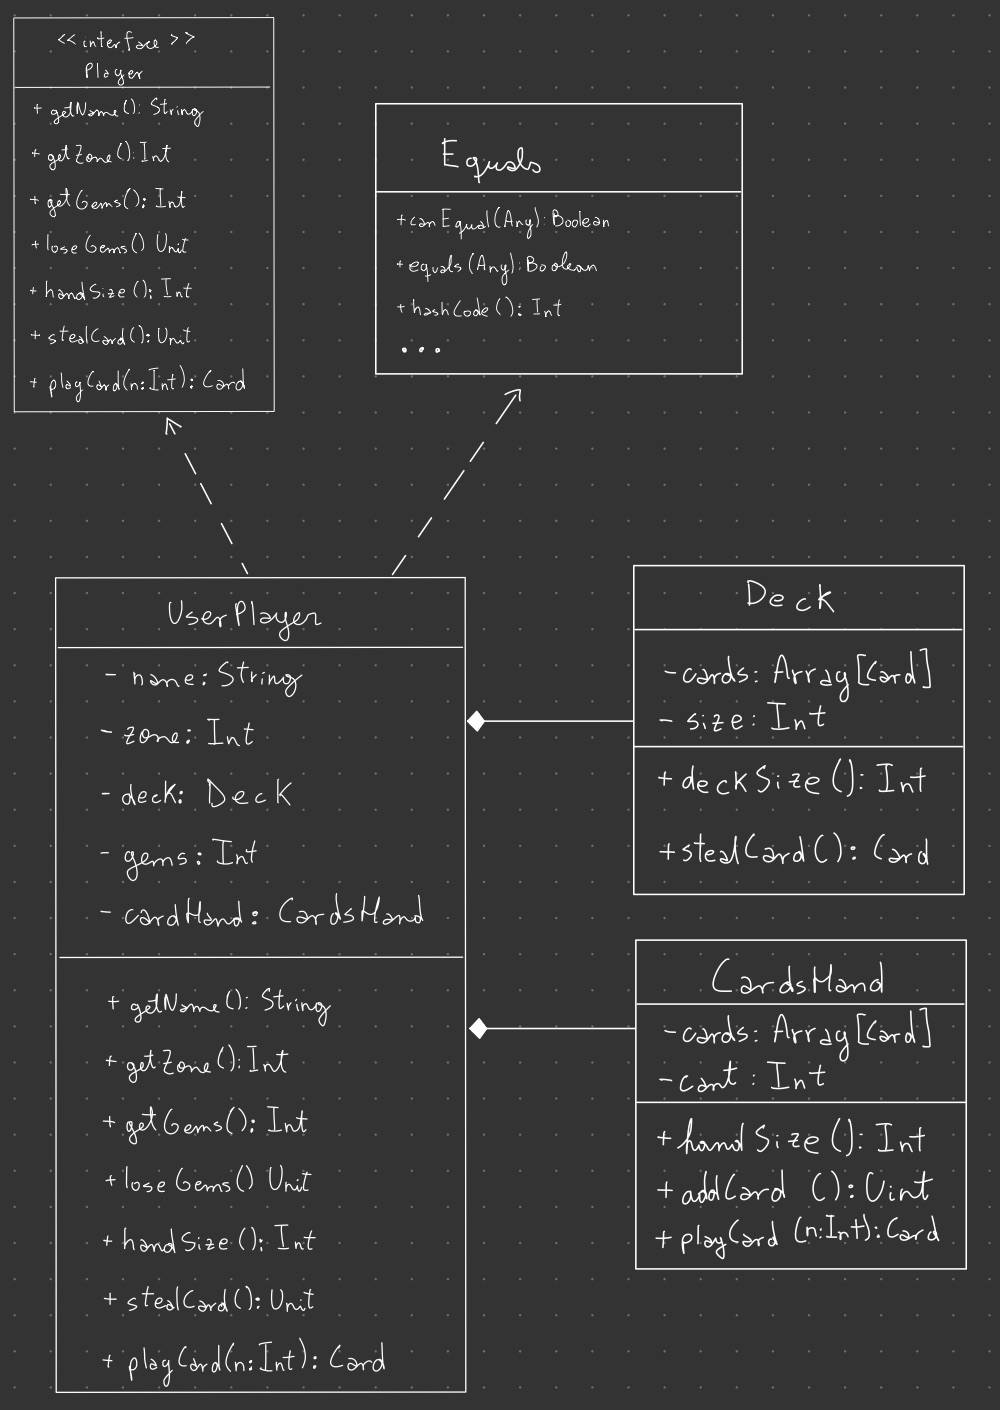 << interface >>
Player
+ getName(): String
+ getZone(): Int
+ getGems(): Int
+ loseGems() Unit
+ handSize(): Int
+ stealCard(): Unit
+ playCard(n: Int): Card
Equals
+ canEqual(Any): Boolean
+ equals(Any): Boolean
+ hashCode(): Int
...
UserPlayer
- name: String
- zone: Int
- deck: Deck
- gems: Int
- cardHand: CardsHand
+ getName(): String
+ getZone(): Int
+ getGems(): Int
+ loseGems() Unit
+ handSize(): Int
+ stealCard(): Unit
+ playCard(n: Int): Card
Deck
- cards: Array[Card]
- size: Int
+ deckSize(): Int
+ stealCard(): Card
CardsHand
- cards: Array[Card]
- cant: Int
+ handSize(): Int
+ addCard (): Uint
+ playCard (n: Int): Card